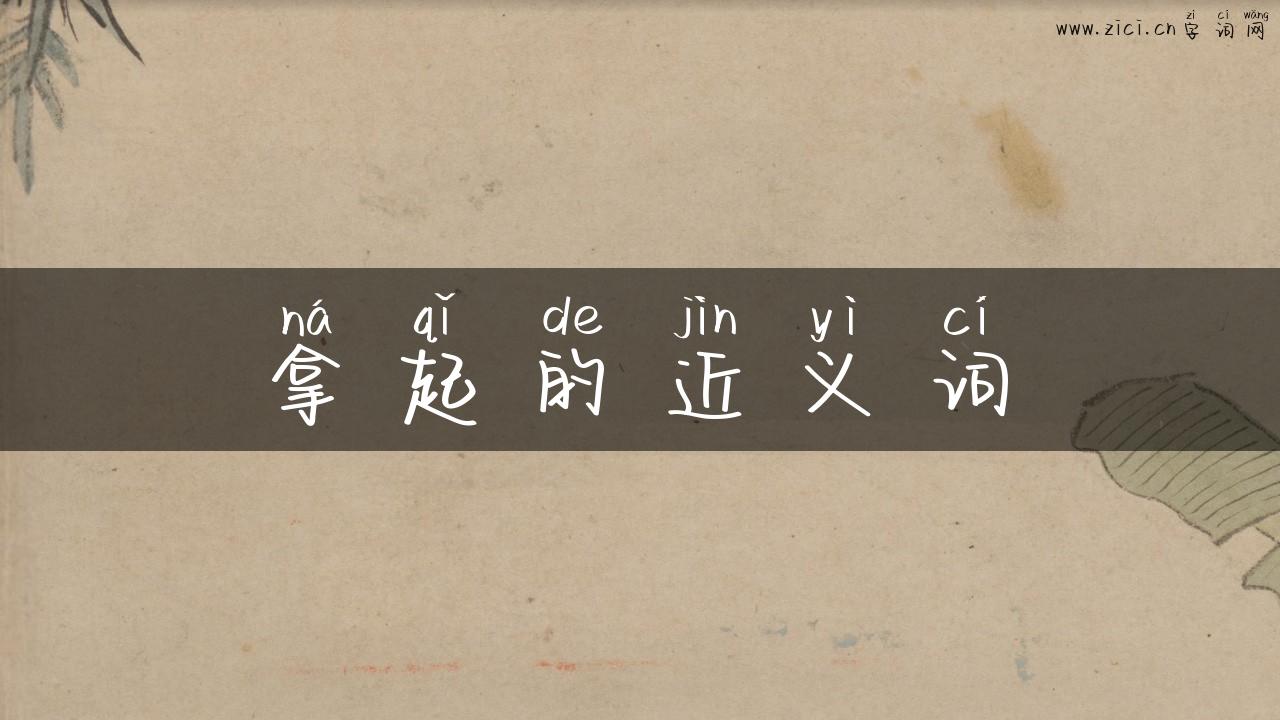 zì cí wǎng
www.zici.cn 字词网
ná qǐ de jìn yì cí
拿起的近义词